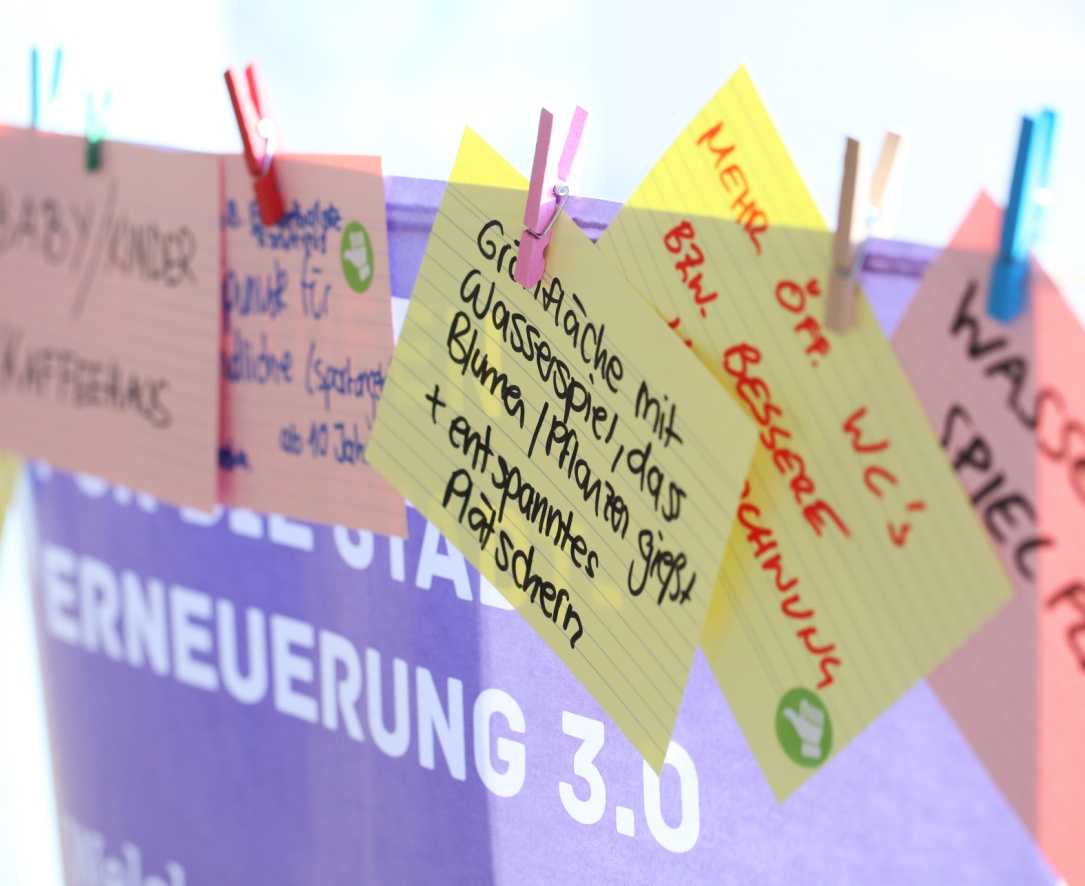 BABY/KINDER
KAFFEEHAUS
für
ab 10 Jah
Grünfläche mit
Wasserspiel, das
Blumen/Pflanzen gießt
+ entspanntes
Plätschern
MEHR ÖFF. WC's
BZW. BESSERE
CHNUNG
WASSE
SPIEL
FÜR DIE STAD
ERNEUERUNG 3.0